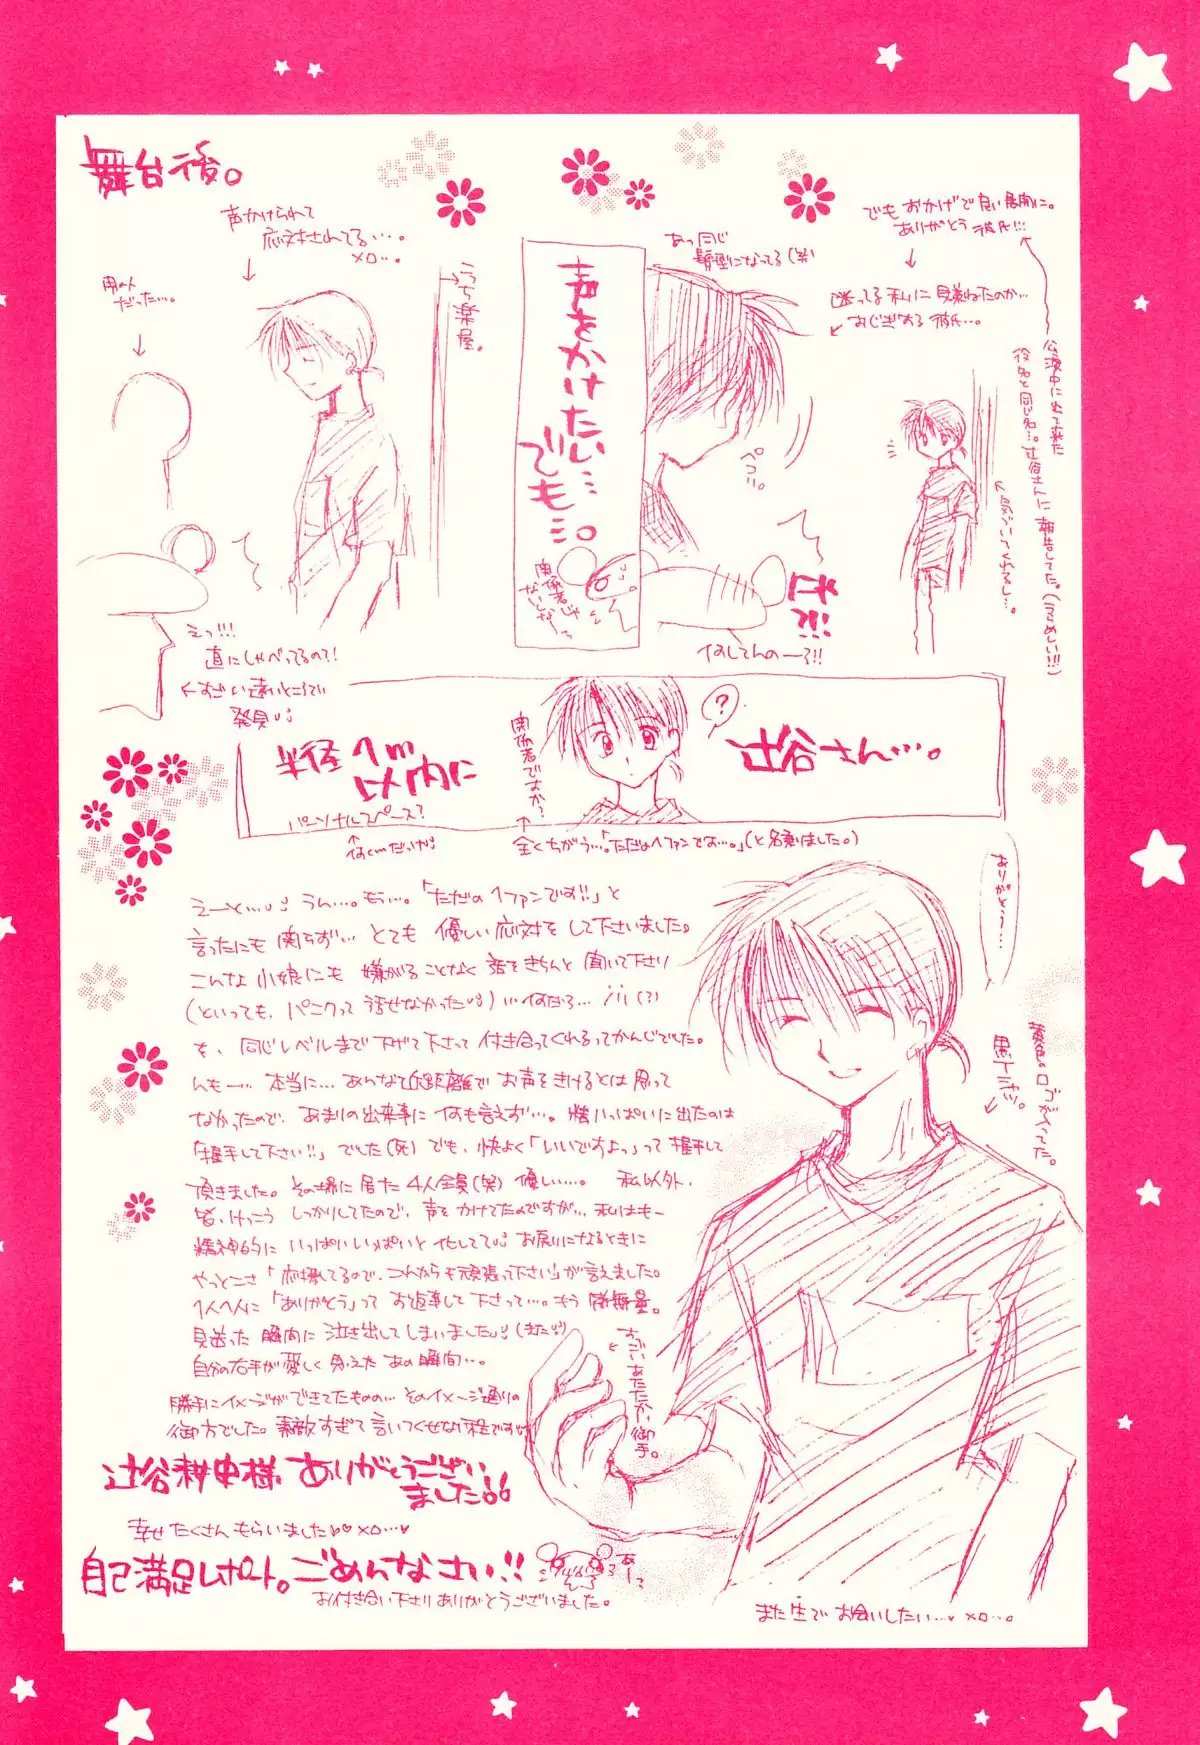 舞台後。
声かけられて
応対されてる…。
メロ…。
男の人
だった…。
うち楽屋。
声をかけたい…
でも…。
関係者じゃ
ないしなーっ
あっ同じ
髪型になってる(笑)
ペコリ。
でもおかげで良い展開に。
ありがとう彼氏!!!
迷ってる私に見兼ねたのか…
おじぎする彼氏…。
公演中に出て来た
役名と同じ名…。辻谷さんに報告してた。
何してんのーろ!!
えっ!!!
直にしゃべってるので!
すごい遠いところで
発見
半径1m
以内に
パーソナルスペース?
関係者ですか?
?
辻谷さん…。
全くちがう…。「ただの1ファンです…。」(と名乗りました。)
えーと… うん…。もう…。「ただの1ファンです!!」と
言ったにも関らず… とても優しい応対をして下さいました。
こんな小娘にも嫌がることなく話をきちんと聞いて下さり
(といっても、パニクって話せなかった)…何だろ…
を、同じレベルまで下げて下さって付き合ってくれるってかんじでした。
んもー… 本当に… あんな近距離でお声をきけるとは思って
なかったので、あまりの出来事に何も言えず…。精いっぱいに出たのは
「握手して下さい!!」でした(死)でも、快よく「いいですよっ」って握手して
頂きました。その場に居た4人全員(笑)優しい…。 私以外、
皆、けっこうしっかりしてたので、声をかけてたのですが… 私はもー
精神的にいっぱいいっぱいと化してて お戻りになるときに
やっとこさ「応援してるので、これからも頑張って下さい」が言えました。
1人1人に「ありがとう」ってお返事して下さって…。もう感無量。
見送った瞬間に泣き出してしまいました
自分の右手が愛しく見えたあの瞬間…。
勝手にイメージができてたものの… そのイメージ通りの
御方でした。素敵すぎて言いつくせない程です
ありがとう…
黄色のロゴが入ってた。
黒Tシャツ。
すごいあたたかい御手。
辻谷耕史様、ありがとうござい
ました!!
幸せたくさんもらいました メロ…
自己満足レポート。ごめんなさい!!
お付き合い下さりありがとうございました。
また生でお会いしたい… メロ…。